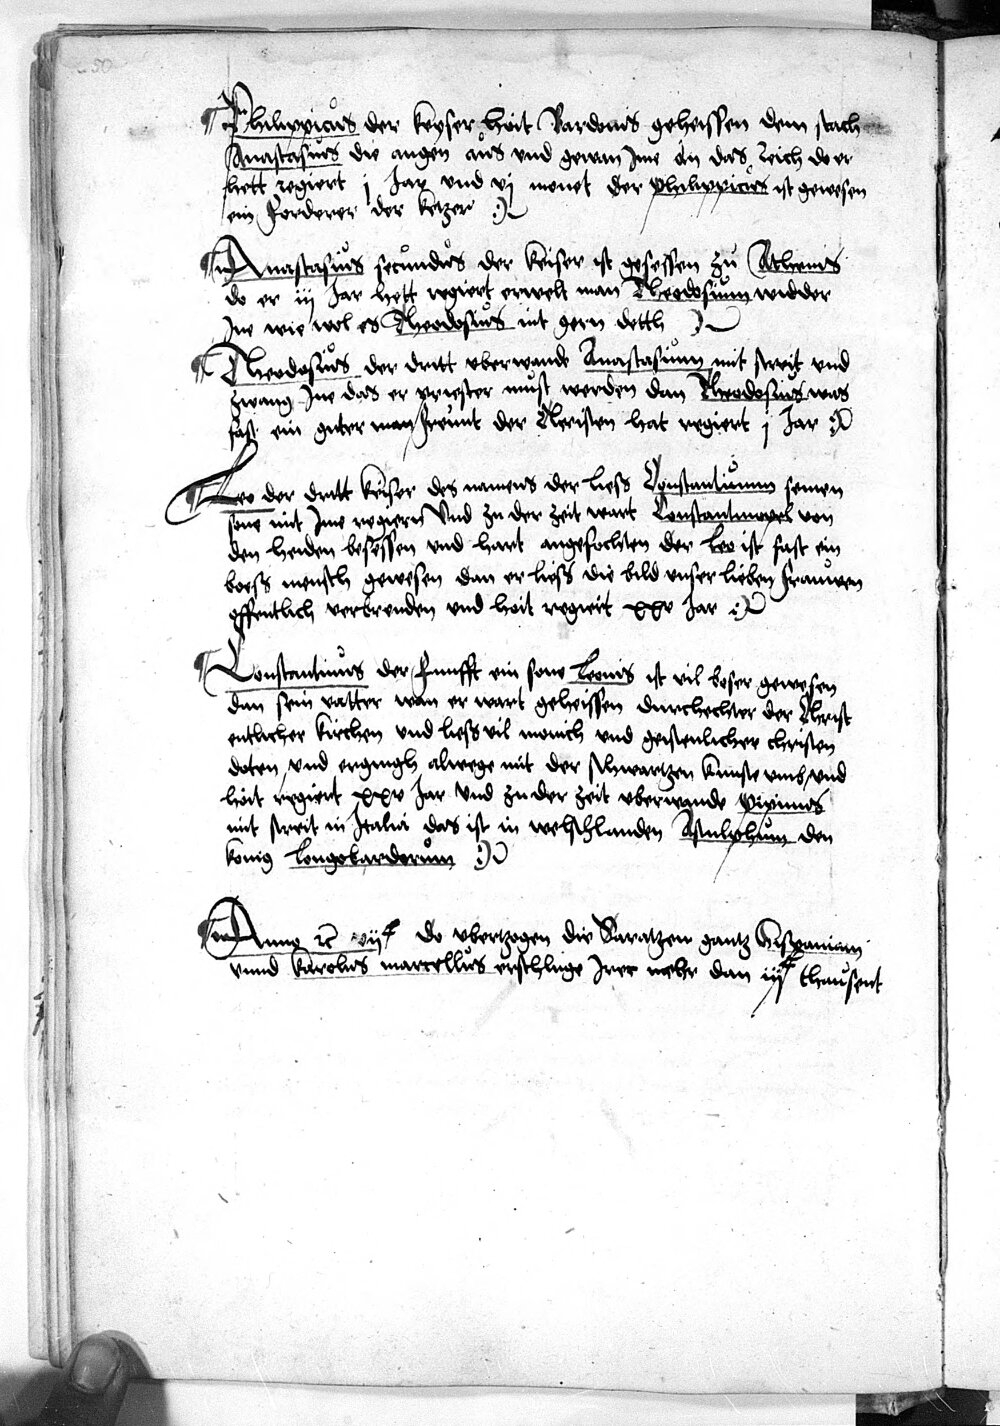 50
¶ Philippicus der keyser hoit Bardonis geheissen dem stach
Anastasius die augen aus und gewan Ime an das Reich do er
hett regiert j Jar und vj monet der philippicus ist gewesen
ein Forderer der ketzer
¶ Anastasius secundus der keiser ist gesessen zu Athenis
do er iij Jar hett regiert erwelt man Theodosium widder
Ine wie wol es Theodosius nit gern dett
¶ Theodosius der dritt uberwande Anastasium mit streyt und
zwang Ine das er priester must werden dan Theodosius was
fast ein guter man Freunt der Cleristen hat regiert j Jar
¶ Leo der dritt keiser des namens der liess Constantinum seinen
sone mit Ime regiern Und zu der zeit wart Constantinopel von
den heiden besessen und hart angefochten der Leo ist fast ein
boess mensch gewesen dan er liess die bild unser lieben Frauwen
offentlich verbrenden und hoit regiert xxv Jar
¶ Constantinus der Funfft ein sone Leonis ist vil boser gewesen
dan sein vatter wan er wart geheissen durchechter der Christ
entlicher kirchen und liess vil monich und geistenlicher christen
doten und ergingh alwege mit der schwartzen kunste umb und
hoit regiert xxxv Jar Und zu der zeit uberwande pipinus
mit streit in Italia das ist in welschlanden Astulphum den
konig Longobardorum
¶ Anno rc vij do ubertzogen die Saratzen gantz Hispaniam
unnd karolus marcellus erschluge Irer mehr dan iij thausent